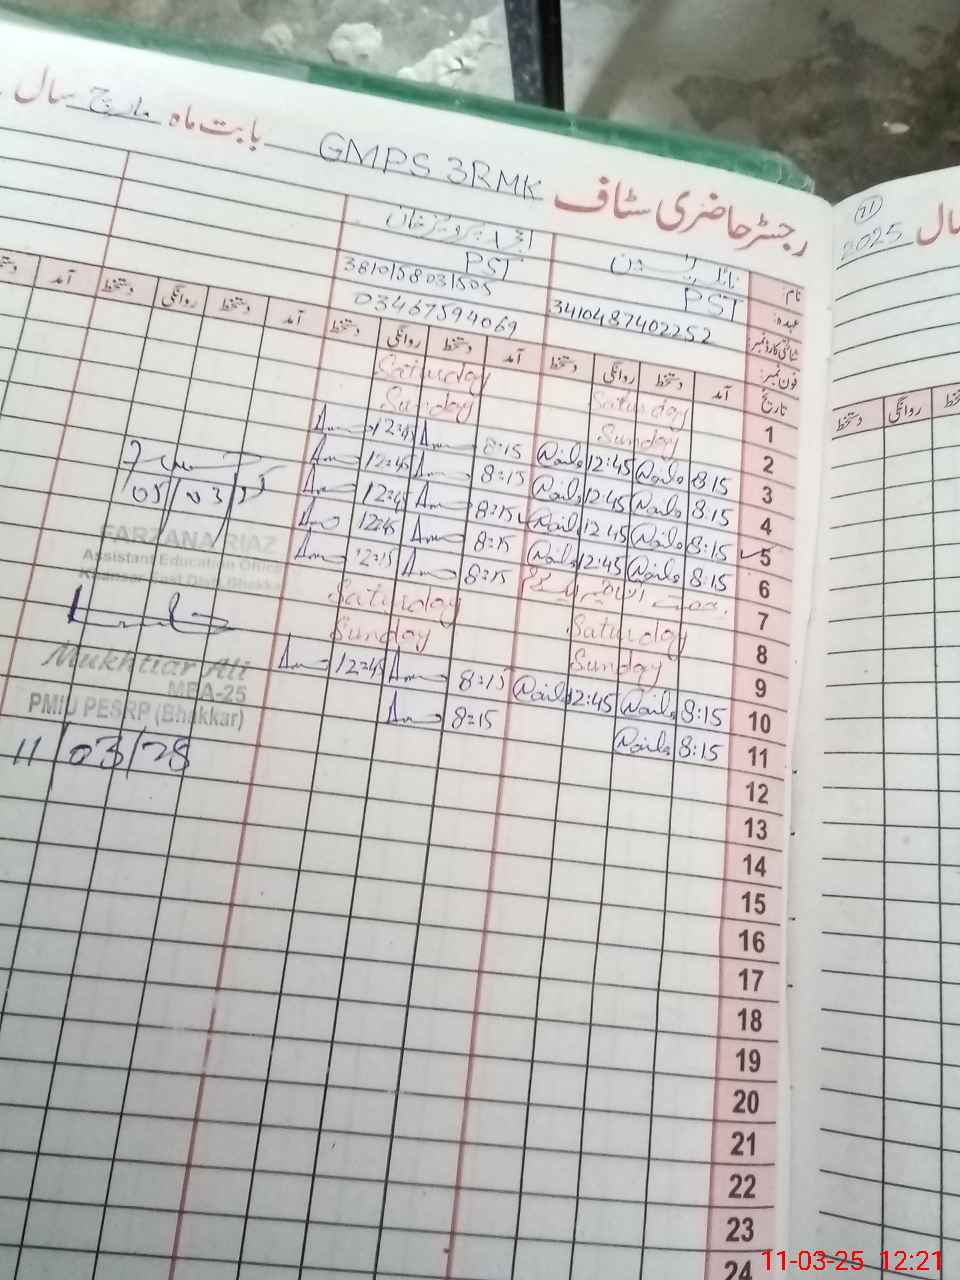 رجسٹر حاضری سٹاف GMPS 3RMK بابت ماہ مارچ سال
71
2025 سال
نام:
عہدہ: PST PST
شناختی کارڈ نمبر: 3410487402252 3810158031505
فون نمبر: 03467594069
تاریخ آمد دستخط روانگی دستخط آمد دستخط روانگی دستخط آمد دستخط روانگی دستخط آمد
روانگی
1 Saturday Saturday
2 Sunday Sunday
3 8:15 12:45 8:15 12:45
4 8:15 12:45 8:15 12:45
5 8:15 12:45 8:15 12:45
6 8:15 12:45 8:15 12:45
7 8:15 12:15
8 Saturday Saturday
9 Sunday Sunday
10 8:15 12:45 8:15 12:45
11 8:15 8:15
12
13
14
15
16
17
18
19
20
21
22
23
24
05/03/25
FARZANA RIAZ
Assistant Education Officer
Mukhtiar Ali
MEA-25
PMIU PESRP (Bhakkar)
11/03/25
11-03-25 12:21